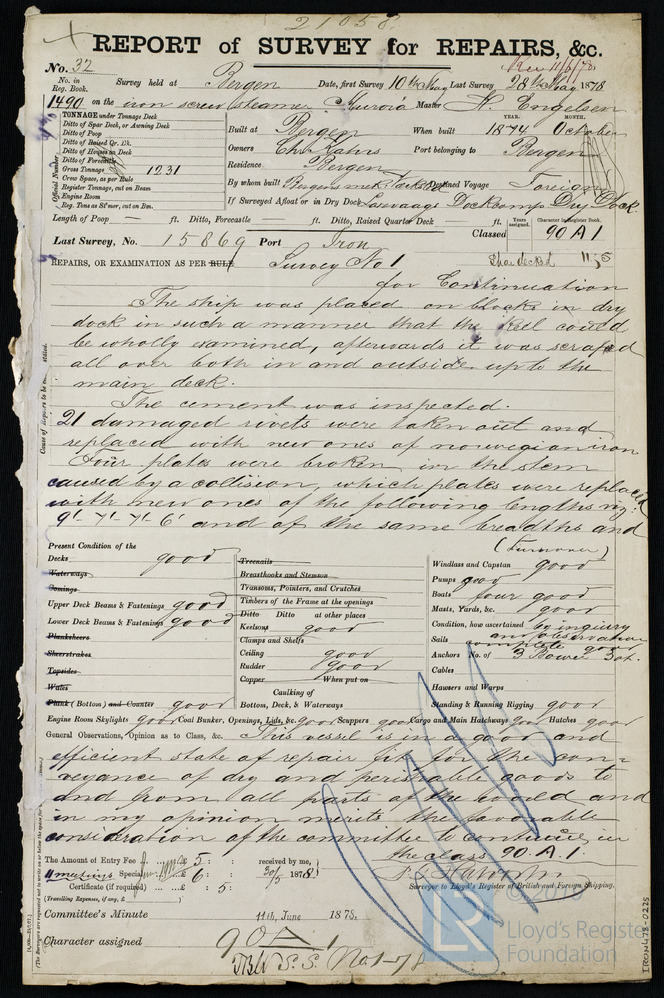 21058
REPORT of SURVEY for REPAIRS, &c.
No. 32
No. in Reg. Book. Survey held at Bergen Date, first Survey 10th May Last Survey 28th May 1878
1490 on the iron screw steamer Aurora Master H. Engelsen
TONNAGE under Tonnage Deck
Ditto of Spar Deck, or Awning Deck
Ditto of Poop
Ditto of Raised Qr. Dk.
Ditto of Houses on Deck
Ditto of Forecastle
Gross Tonnage 1231
Crew Space, as per Rule
Register Tonnage, cut on Beam
Engine Room
Reg. Tons as St'mer, cut on Bm.
Official Number
Built at Bergen When built YEAR. 1874 MONTH. October
Owners Chr. Port belonging to Bergen
Residence Bergen
By whom built Bergens mek. Destined Voyage Foreign
If Surveyed Afloat or in Dry Dock Dry Dock
Length of Poop — ft. Ditto, Forecastle — ft. Ditto, Raised Quarter Deck ft.
Years assigned. Character in Register Book.
Last Survey, No. 15869 Port Iron Classed 90 A 1
REPAIRS, OR EXAMINATION AS PER RULE Survey No 1
for Continuation
The ship was placed on blocks in dry
dock in such a manner that the keel could
be wholly examined, afterwards it was scraped
all over both in and outside up to the
main deck.
The cement was inspected.
21 damaged rivets were taken out and
replaced with new ones of norwegian iron
Four plates were broken in the stem
caused by a collision, which plates were replaced
with new ones of the following lengths viz:
9'- 7'- 7'- 6' and of the same breadths and
(Turnover)
Present Condition of the
Decks good
Waterways
Comings
Upper Deck Beams & Fastenings good
Lower Deck Beams & Fastenings good
Planksheers
Sheerstrakes
Topsides
Wales
Plank (Bottom) and Counter good
Treenails
Breasthooks and Stemson
Transoms, Pointers, and Crutches
Timbers of the Frame at the openings
Ditto Ditto at other places
Keelsons good
Clamps and Shelfs
Ceiling good
Rudder good
Copper When put on
Caulking of
Bottom, Deck, & Waterways
Windlass and Capstan good
Pumps good
Boats four good
Masts, Yards, &c. good
Condition, how ascertained by inquiry
and observation
Sails complete good
Anchors No. of 3 Bower
Cables
Hawsers and Warps
Standing & Running Rigging good
Engine Room Skylights good Coal Bunker, Openings, Lids, &c. good Scuppers good Cargo and Main Hatchways good Hatches good
General Observations, Opinion as to Class, &c. This vessel is in a good and
efficient state of repair fit for the con=
veyance of dry and perishable goods to
and from all parts of the would and
in my opinion merits the favorable
consideration of the committee to continue in
the class 90. A. 1
The Amount of Entry Fee £ 5 : : received by me,
Special £ 6 : : 30/5 1878
Certificate (if required) £ : 5 :
(Travelling Expenses, if any, £ )
Surveyor to Lloyd's Register of British and Foreign Shipping.
Committee's Minute 11th, June 1878.
Character assigned 90 A 1
S.S. No 1-78
LR
© 2018
Lloyd's Register
Foundation
IRON478-0225